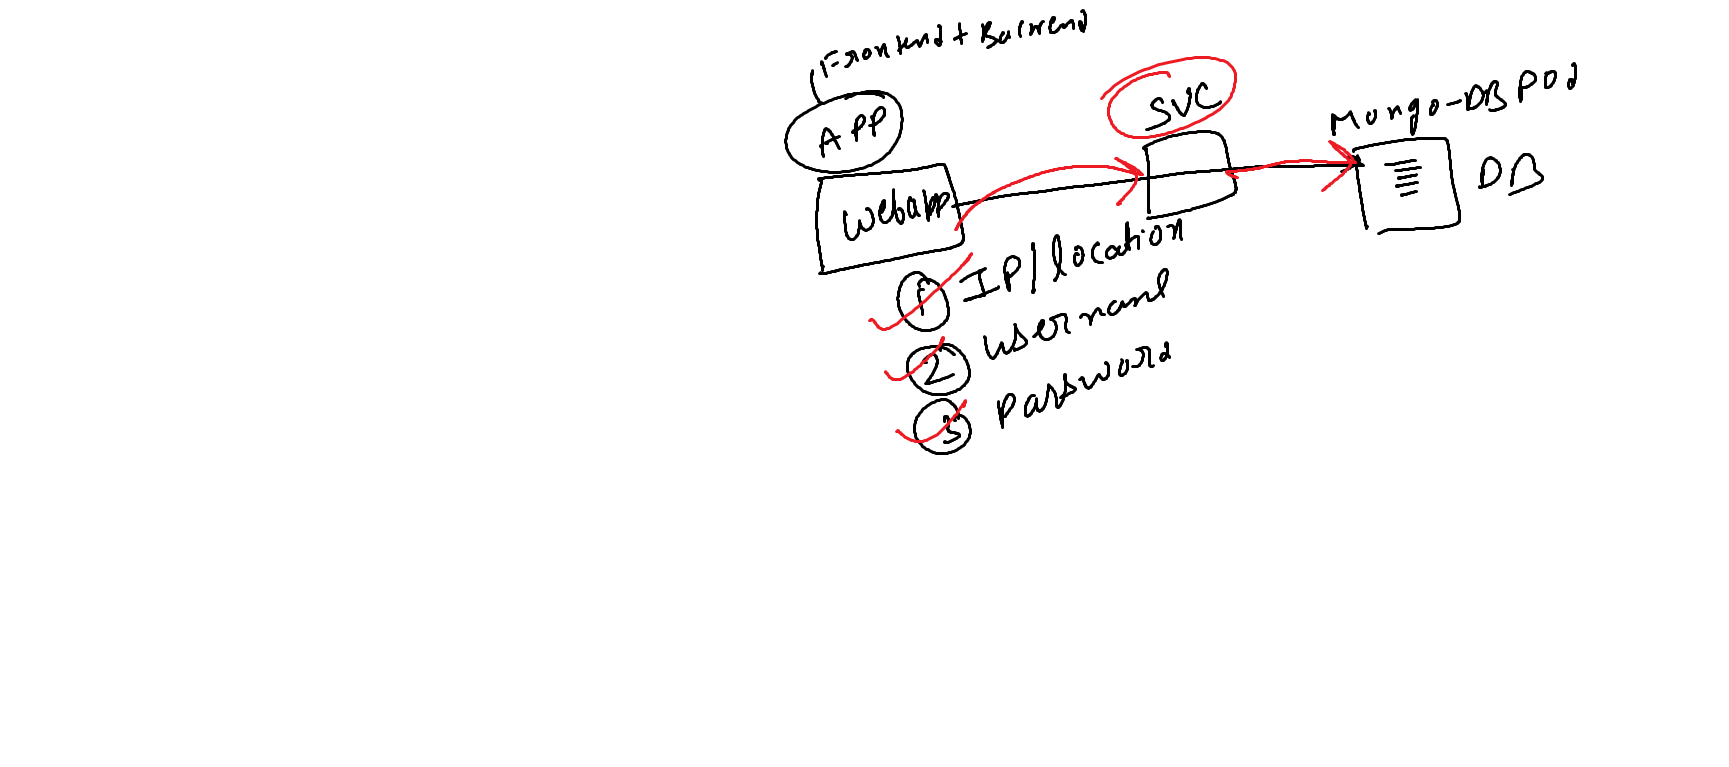 Frontend + Backend
APP
SVC
Mongo-DB Pod
Webapp
DB
1 IP/location
2 username
3 Password